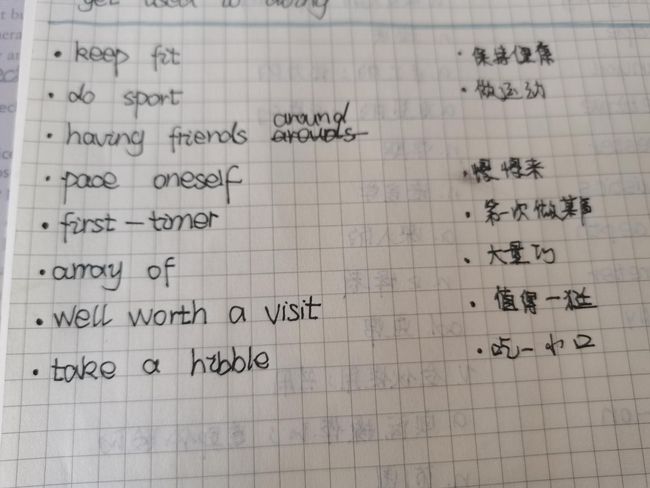 get used to doing
• keep fit • 保持健康
• do sport • 做运动
• having friends around arounds
• pace oneself • 慢慢来
• first-timer • 第一次做某事
• array of • 大量的
• well worth a visit • 值得一逛
• take a hibble • 吃一小口